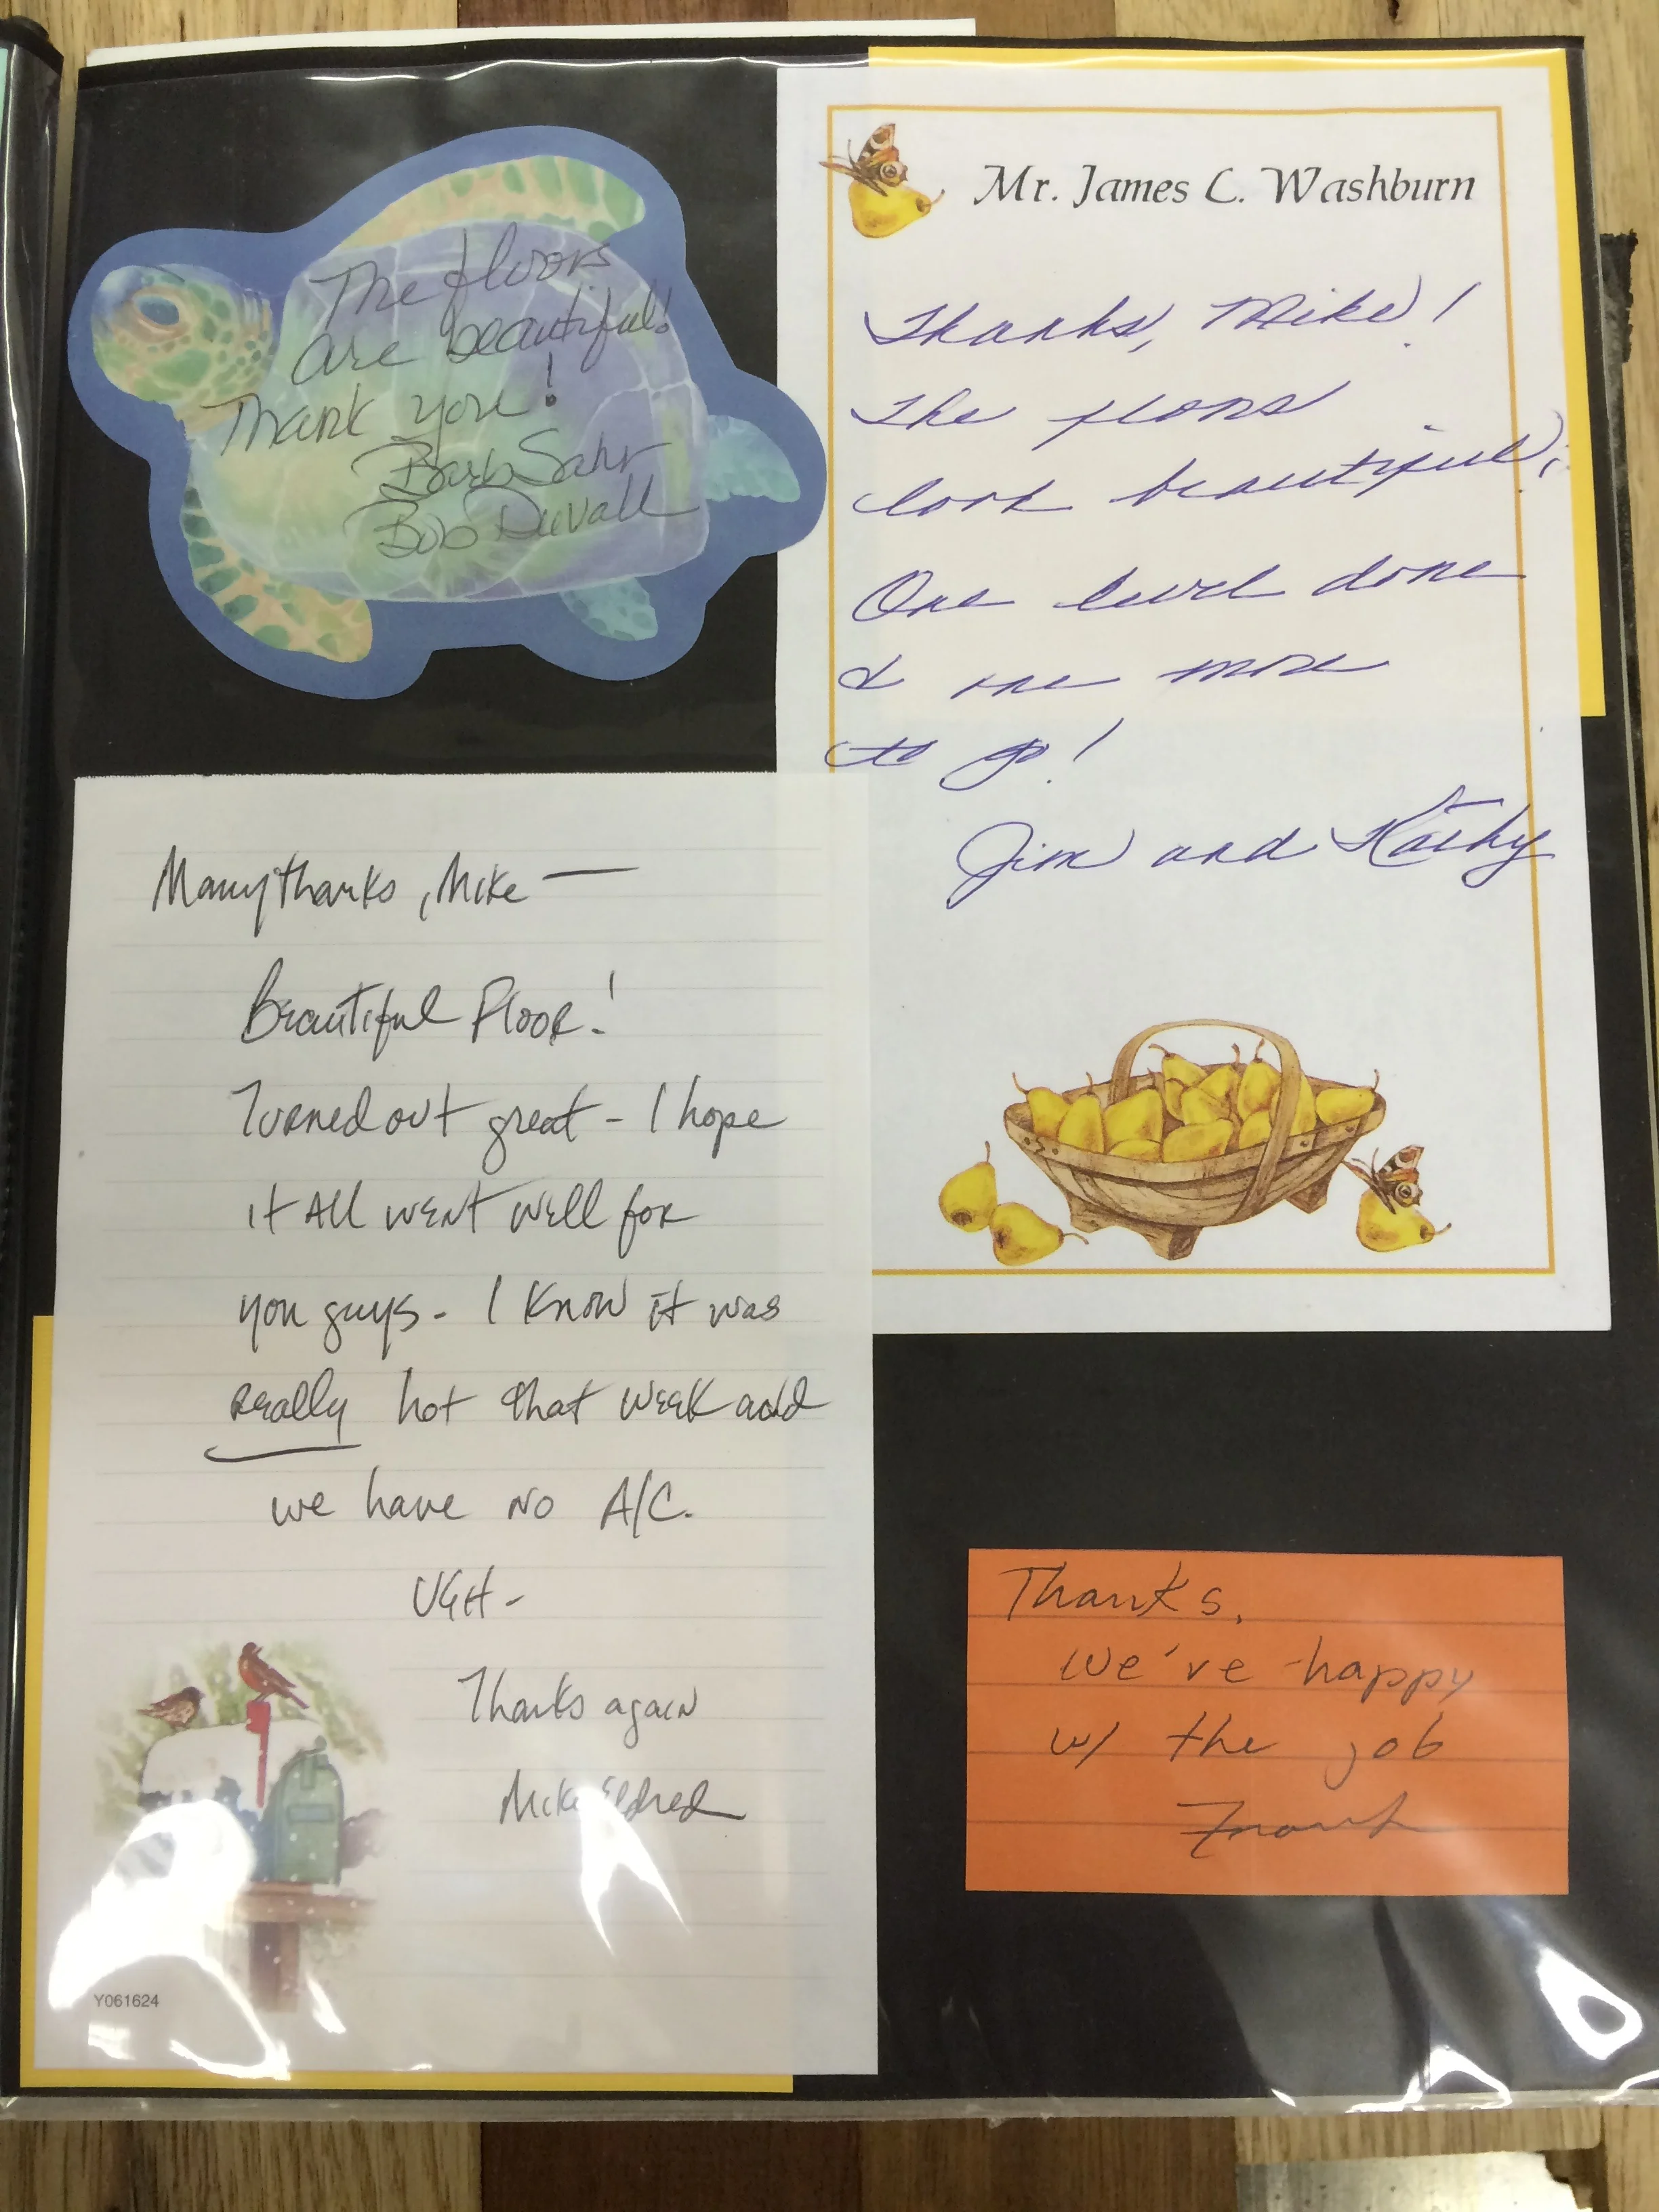 The floors
are beautiful!
Thank you!
Barb Sahr
Bob Duvall
Mr. James C. Washburn
Thanks, Mike!
The floors
look beautiful!
One level done
& one more
to go!
Jim and Kathy
Many thanks, Mike —
Beautiful Floor!
Turned out great - I hope
it all went well for
you guys - I know it was
really hot that week and
we have no A/C.
UGH -
Thanks again
Mike Eldred
Y061624
Thanks,
we've happy
w/ the job
Frank